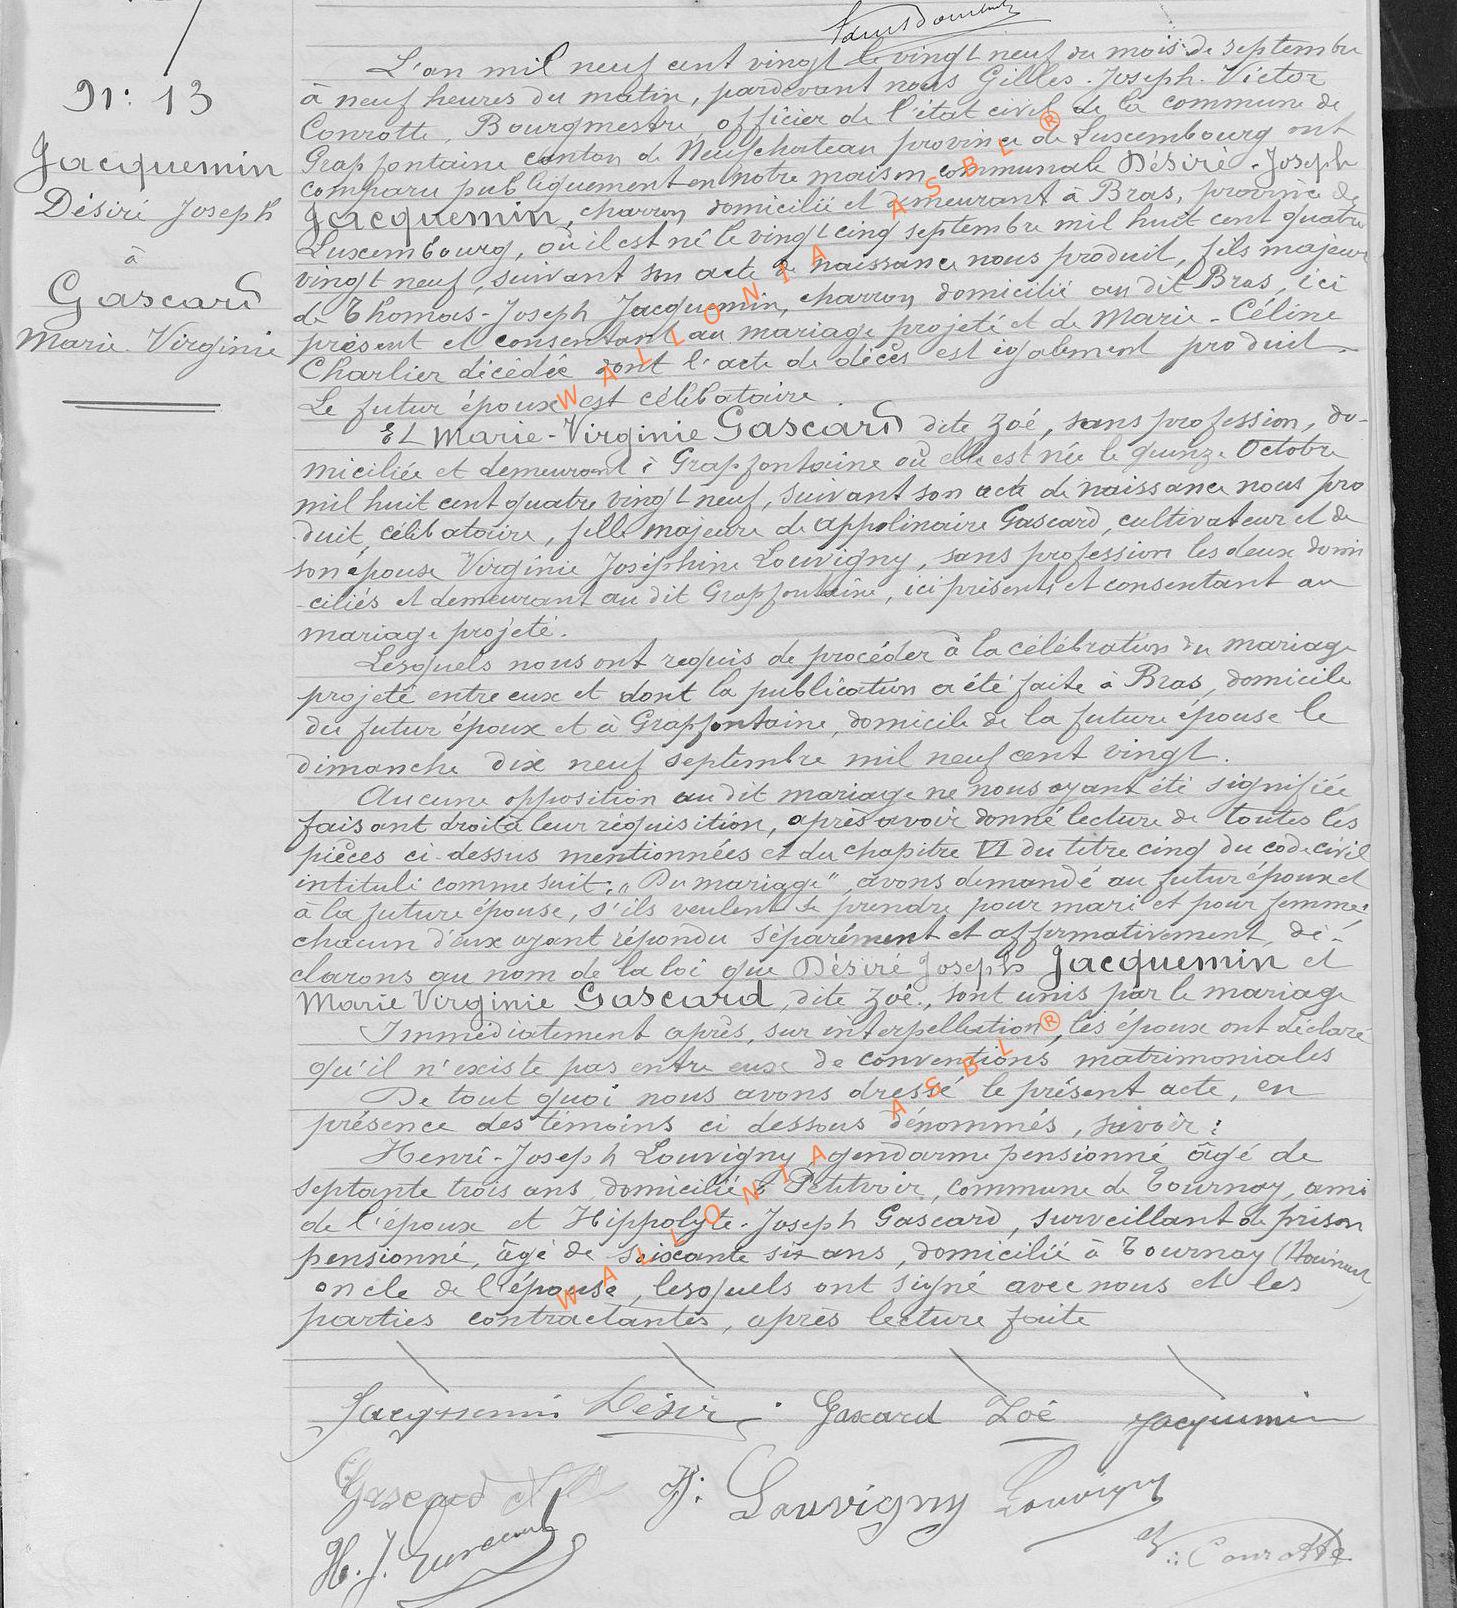 N: 13
Jacquemin
Désiré Joseph
à
Gascard
Marie-Virginie
L'an mil neuf cent vingt le vingt neuf du mois de septembre
à neuf heures du matin, pardevant nous Gilles-Joseph-Victor
Conrotte, Bourgmestre, officier de l'état civil de la commune de
Grapfontaine canton de Neufchateau province de Luxembourg ont
comparu publiquement en notre maison communale Désiré-Joseph
Jacquemin, charron domicilié et demeurant à Bras, province de
Luxembourg, où il est né le vingt cinq septembre mil huit cent quatre
vingt neuf, suivant son acte de naissance nous produit, fils majeur
de Thomas-Joseph Jacquemin, charron domicilié au dit Bras, ici
présent et consentant au mariage projeté et de Marie-Céline
Charlier décédée dont l'acte de décès est également produit.
Le futur époux est célibataire.
Et Marie-Virginie Gascard dite Zoé, sans profession, do-
miciliée et demeurant à Grapfontaine où elle est née le quinze Octobre
mil huit cent quatre vingt neuf, suivant son acte de naissance nous pro
duit, célibataire, fille majeure de Appolinaire Gascard, cultivateur et de
son épouse Virginie Joséphine Louvigny, sans profession les deux domi
-ciliés et demeurant au dit Grapfontaine, ici présents et consentant au
mariage projeté.
Lesquels nous ont requis de procéder à la célébration du mariage
projeté entre eux et dont la publication a été faite à Bras, domicile
du futur époux et à Grapfontaine, domicile de la future épouse le
dimanche dix neuf septembre mil neuf cent vingt.
Aucune opposition au dit mariage ne nous ayant été signifiée
faisant droit à leur réquisition, après avoir donné lecture de toutes les
pièces ci-dessus mentionnées et du chapitre VI du titre cinq du code civil
intitulé comme suit: „Du mariage", avons demandé au futur époux et
à la future épouse, s'ils veulent se prendre pour mari et pour femme:
chacun d'eux ayant répondu séparément et affirmativement, dé-
clarons au nom de la loi que Désiré Joseph Jacquemin et
Marie Virginie Gascard, dite Zoé, sont unis par le mariage
Immédiatement après, sur interpellation, les époux ont déclaré
qu'il n'existe pas entre eux de conventions matrimoniales
De tout quoi nous avons dressé le présent acte, en
présence des témoins ci dessous dénommés, savoir:
Henri-Joseph Louvigny gendarme pensionné âgé de
septante trois ans, domicilié à Petitvoir, commune de Tournay, ami
de l'époux et Hippolyte-Joseph Gascard, surveillant de prison
pensionné, âgé de soixante six ans, domicilié à Tournay (Hainaut)
oncle de l'épouse, lesquels ont signé avec nous et les
parties contractantes, après lecture faite
Jacquemin Désiré Gascard Zoé Jacquemin
Gascard J: Louvigny Louvigny
H. J. V: Conrotte
WALLONIA ASBL ®
WALLONIA ASBL ®